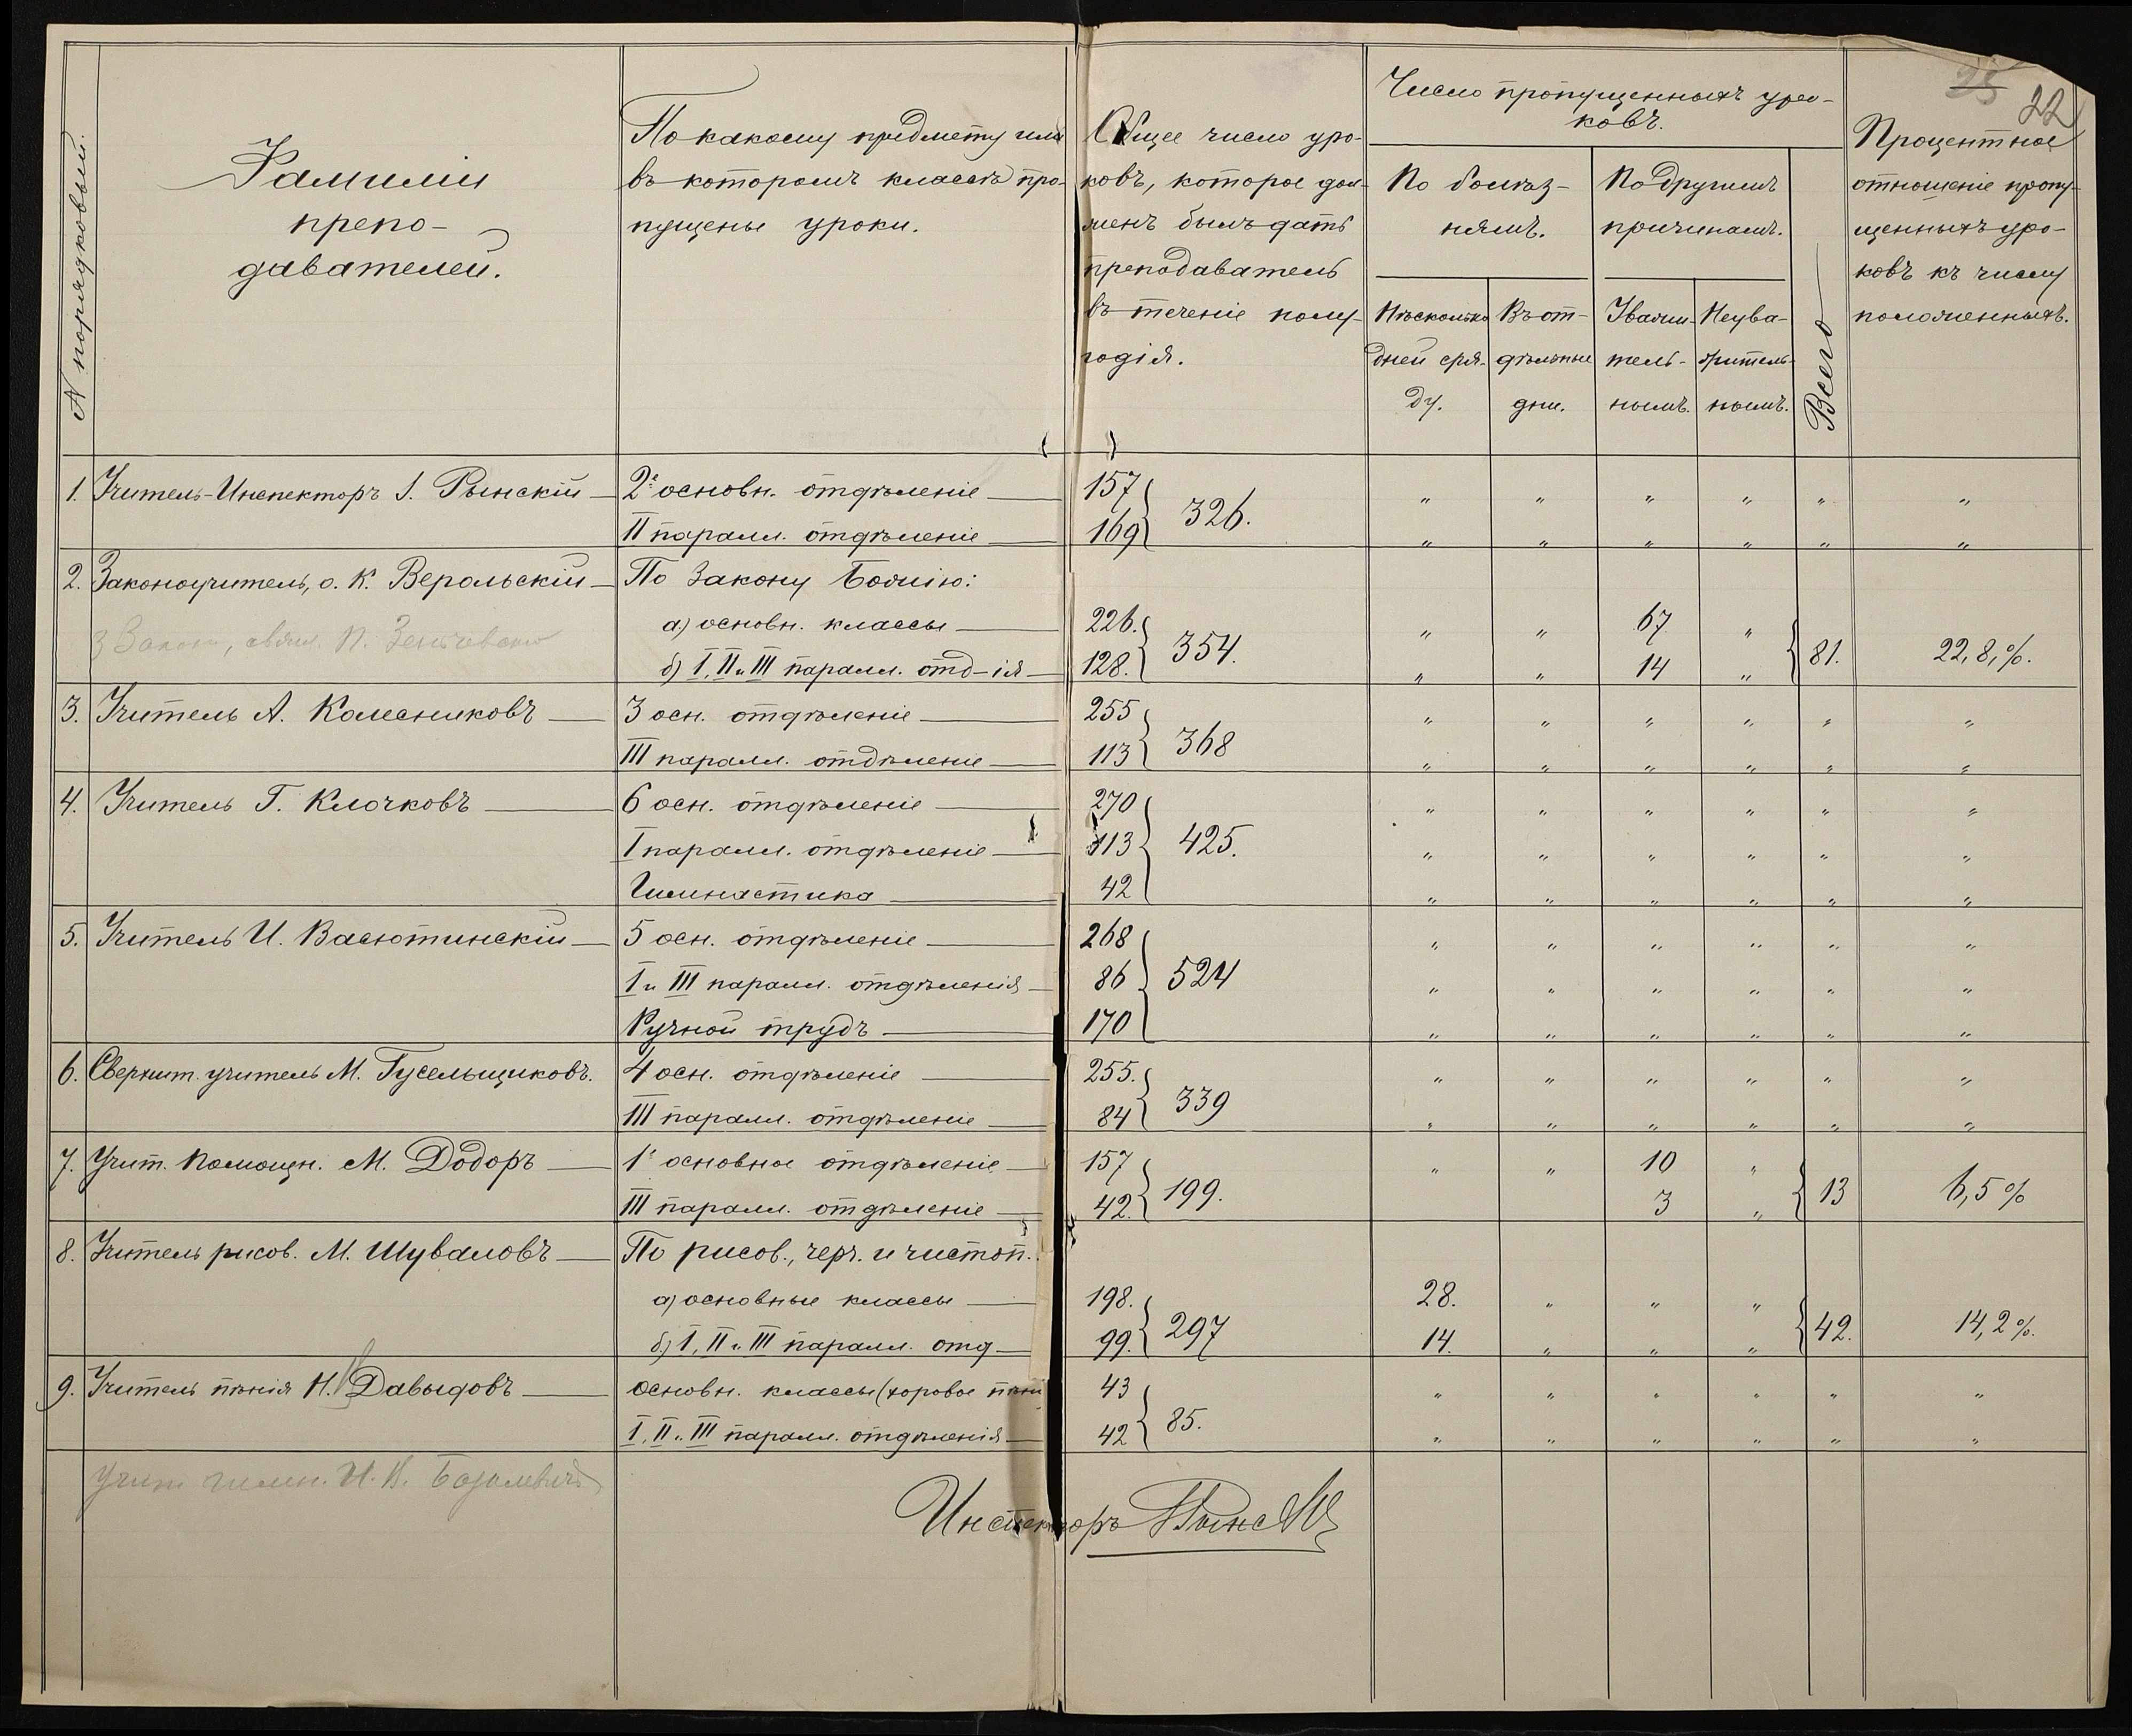 25
22
№ порядковый.
Фамилiи
препо-
давателей.
По какому предмету или
въ которомъ классѣ про-
пущены уроки.
Общее число уро-
ковъ, которое дол-
женъ былъ дать
преподаватель
въ теченiе полу-
годiя.
Число пропущенныхъ уро-
ковъ.
По болѣз-
нямъ.
По другимъ
причинамъ.
Нѣсколько
дней сря-
ду.
Въ от-
дѣльные
дни.
Уважи-
тель-
нымъ.
Неува-
житель-
нымъ.
Всего
Процентное
отношенiе пропу-
щенныхъ уро-
ковъ къ числу
положенныхъ.
1. Учитель-Инспекторъ I. Рынскiй — 2е основн. отдѣленiе — 157 326. " " " " " "
II паралл. отдѣленiе — 169 " " " " " "
2. Законоучитель, о. К. Верольскiй — По Закону Божiю:
а) основн. классы — 226. 354. " " 67 " 81. 22,8,%.
3 Закон, свящ. П.
б) I, II и III паралл. отд-iя — 128. " " 14 "
3. Учитель А. Колесниковъ — 3 осн. отдѣленiе — 255 368 " " " " " "
III паралл. отдѣленiе — 113 " " " " " "
4. Учитель Г. Клочковъ — 6 осн. отдѣленiе — 270 425. " " " " " "
I паралл. отдѣленiе — 113 " " " " " "
Гимнастика — 42 " " " " " "
5. Учитель И. Васютинскiй — 5 осн. отдѣленiе — 268 524 " " " " " "
I и III паралл. отдѣленiя — 86 " " " " " "
Ручной трудъ — 170 " " " " " "
6. Сверхшт. учитель М. Гусельщиковъ. 4 осн. отдѣленiе — 255. 339 " " " " " "
III паралл. отдѣленiе — 84 " " " " " "
7. Учит. Помощн. М. Додоръ — 1е основное отдѣленiе — 157 199. " " 10 " 13 6,5%
III паралл. отдѣленiе — 42. 3 "
8. Учитель рисов. М. Шуваловъ — По рисов., черч. и чистоп.
а) основные классы — 198. 297 28. " " " 42. 14,2%.
б) I, II и III паралл. отд — 99. 14. " " "
9. Учитель пѣнiя Н. Давыдовъ — основн. классы (хоровое пѣнi 43 85. " " " " " "
I, II и III паралл. отдѣленiя — 42 " " " " " "
Учит гимн. И. К.
Инспекторъ Рынскiй